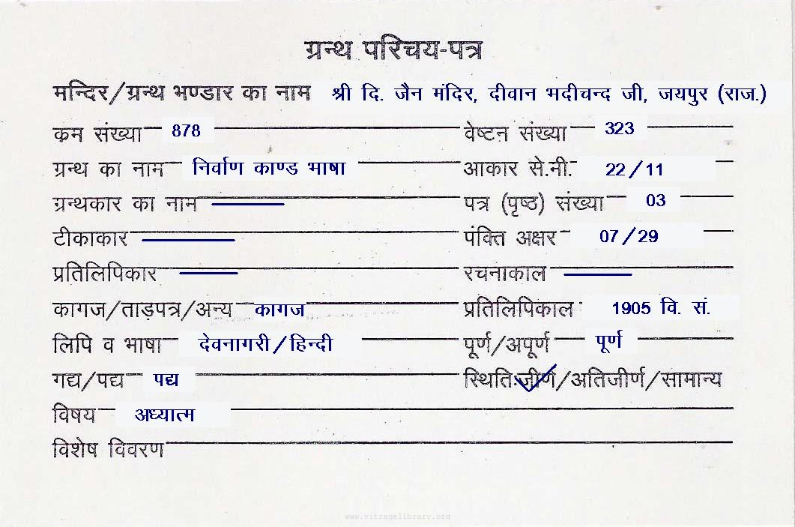 ग्रन्थ परिचय-पत्र
मन्दिर/ग्रन्थ भण्डार का नाम श्री दि. जैन मंदिर, दीवान भदीचन्द जी, जयपुर (राज.)
कम संख्या 878 वेष्टन संख्या 323
ग्रन्थ का नाम निर्वाण काण्ड भाषा आकार से.मी. 22/11
ग्रन्थकार का नाम पत्र (पृष्ठ) संख्या 03
टीकाकार पंक्ति अक्षर 07/29
प्रतिलिपिकार रचनाकाल
कागज/ताड़पत्र/अन्य कागज प्रतिलिपिकाल 1905 वि. सं.
लिपि व भाषा देवनागरी/हिन्दी पूर्ण/अपूर्ण पूर्ण
गद्य/पद्य पद्य स्थिति:जीर्ण/अतिजीर्ण/सामान्य
विषय अध्यात्म
विशेष विवरण